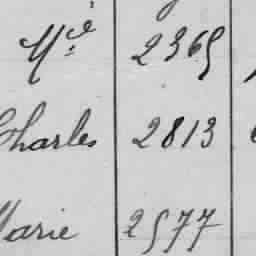 Mce 2365
Charles 2813
Marie 2577